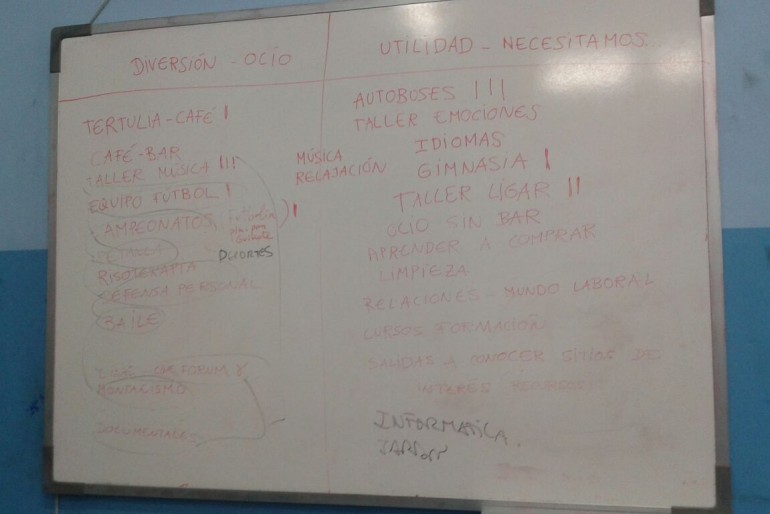 DIVERSIÓN - OCIO
TERTULIA-CAFÉ I
CAFÉ-BAR
TALLER MÚSICA III
EQUIPO FÚTBOL I
CAMPEONATOS
PETANCA
DEPORTES
RISOTERAPIA
DEFENSA PERSONAL
BAILE
FORUM
MONTAÑISMO
DOCUMENTALES
UTILIDAD - NECESITAMOS.
AUTOBUSES III
TALLER EMOCIONES
IDIOMAS
MÚSICA
RELAJACIÓN
GIMNASIA I
TALLER LIGAR II
OCIO SIN BAR
APRENDER A COMPRAR
LIMPIEZA
RELACIONES - MUNDO LABORAL
CURSOS FORMACIÓN
SALIDAS A CONOCER SITIOS
INTERÉS RECURSOS
INFORMATICA.